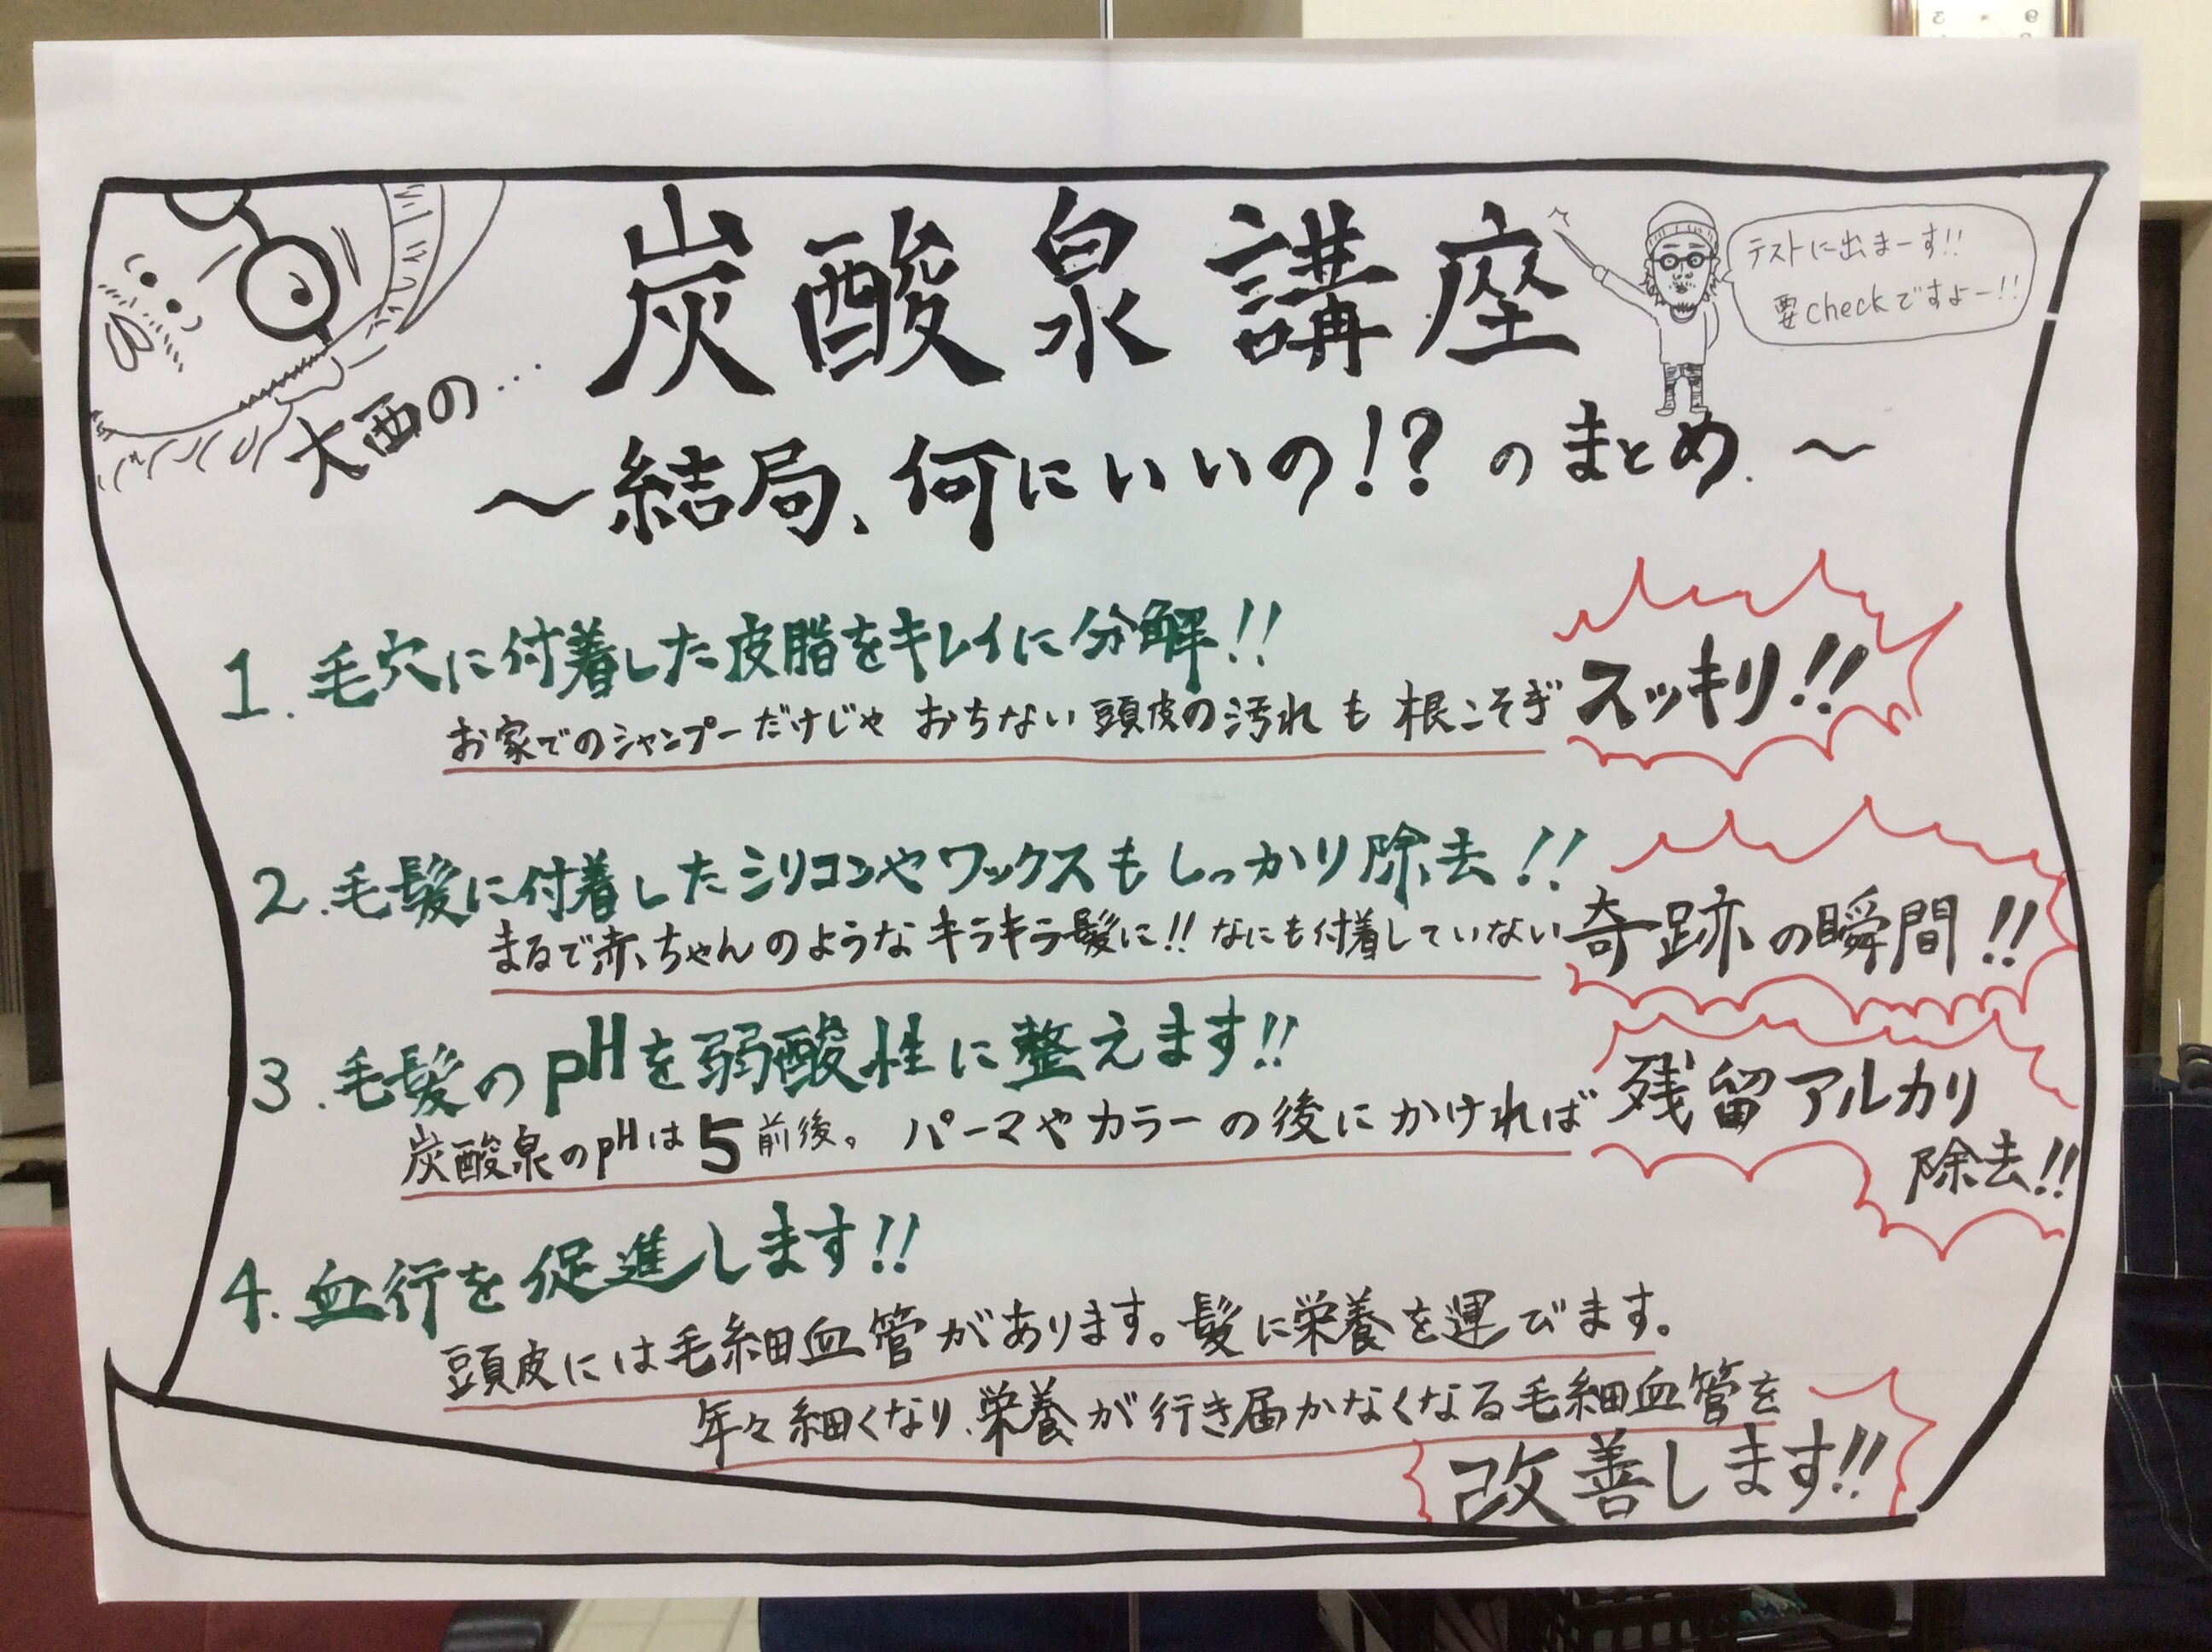 大西の…
炭酸泉講座
テストに出まーす!!
要checkですよー!!
〜結局、何にいいの!?のまとめ.〜
1. 毛穴に付着した皮脂をキレイに分解!!
お家でのシャンプーだけじゃおちない頭皮の汚れも根こそぎスッキリ!!
2. 毛髪に付着したシリコンやワックスもしっかり除去!!
まるで赤ちゃんのようなキラキラ髪に!!なにも付着していない奇跡の瞬間!!
3. 毛髪のpHを弱酸性に整えます!!
炭酸泉のpHは5前後。パーマやカラーの後にかければ残留アルカリ
除去!!
4. 血行を促進します!!
頭皮には毛細血管があります。髪に栄養を運びます。
年々細くなり、栄養が行き届かなくなる毛細血管を
改善します!!